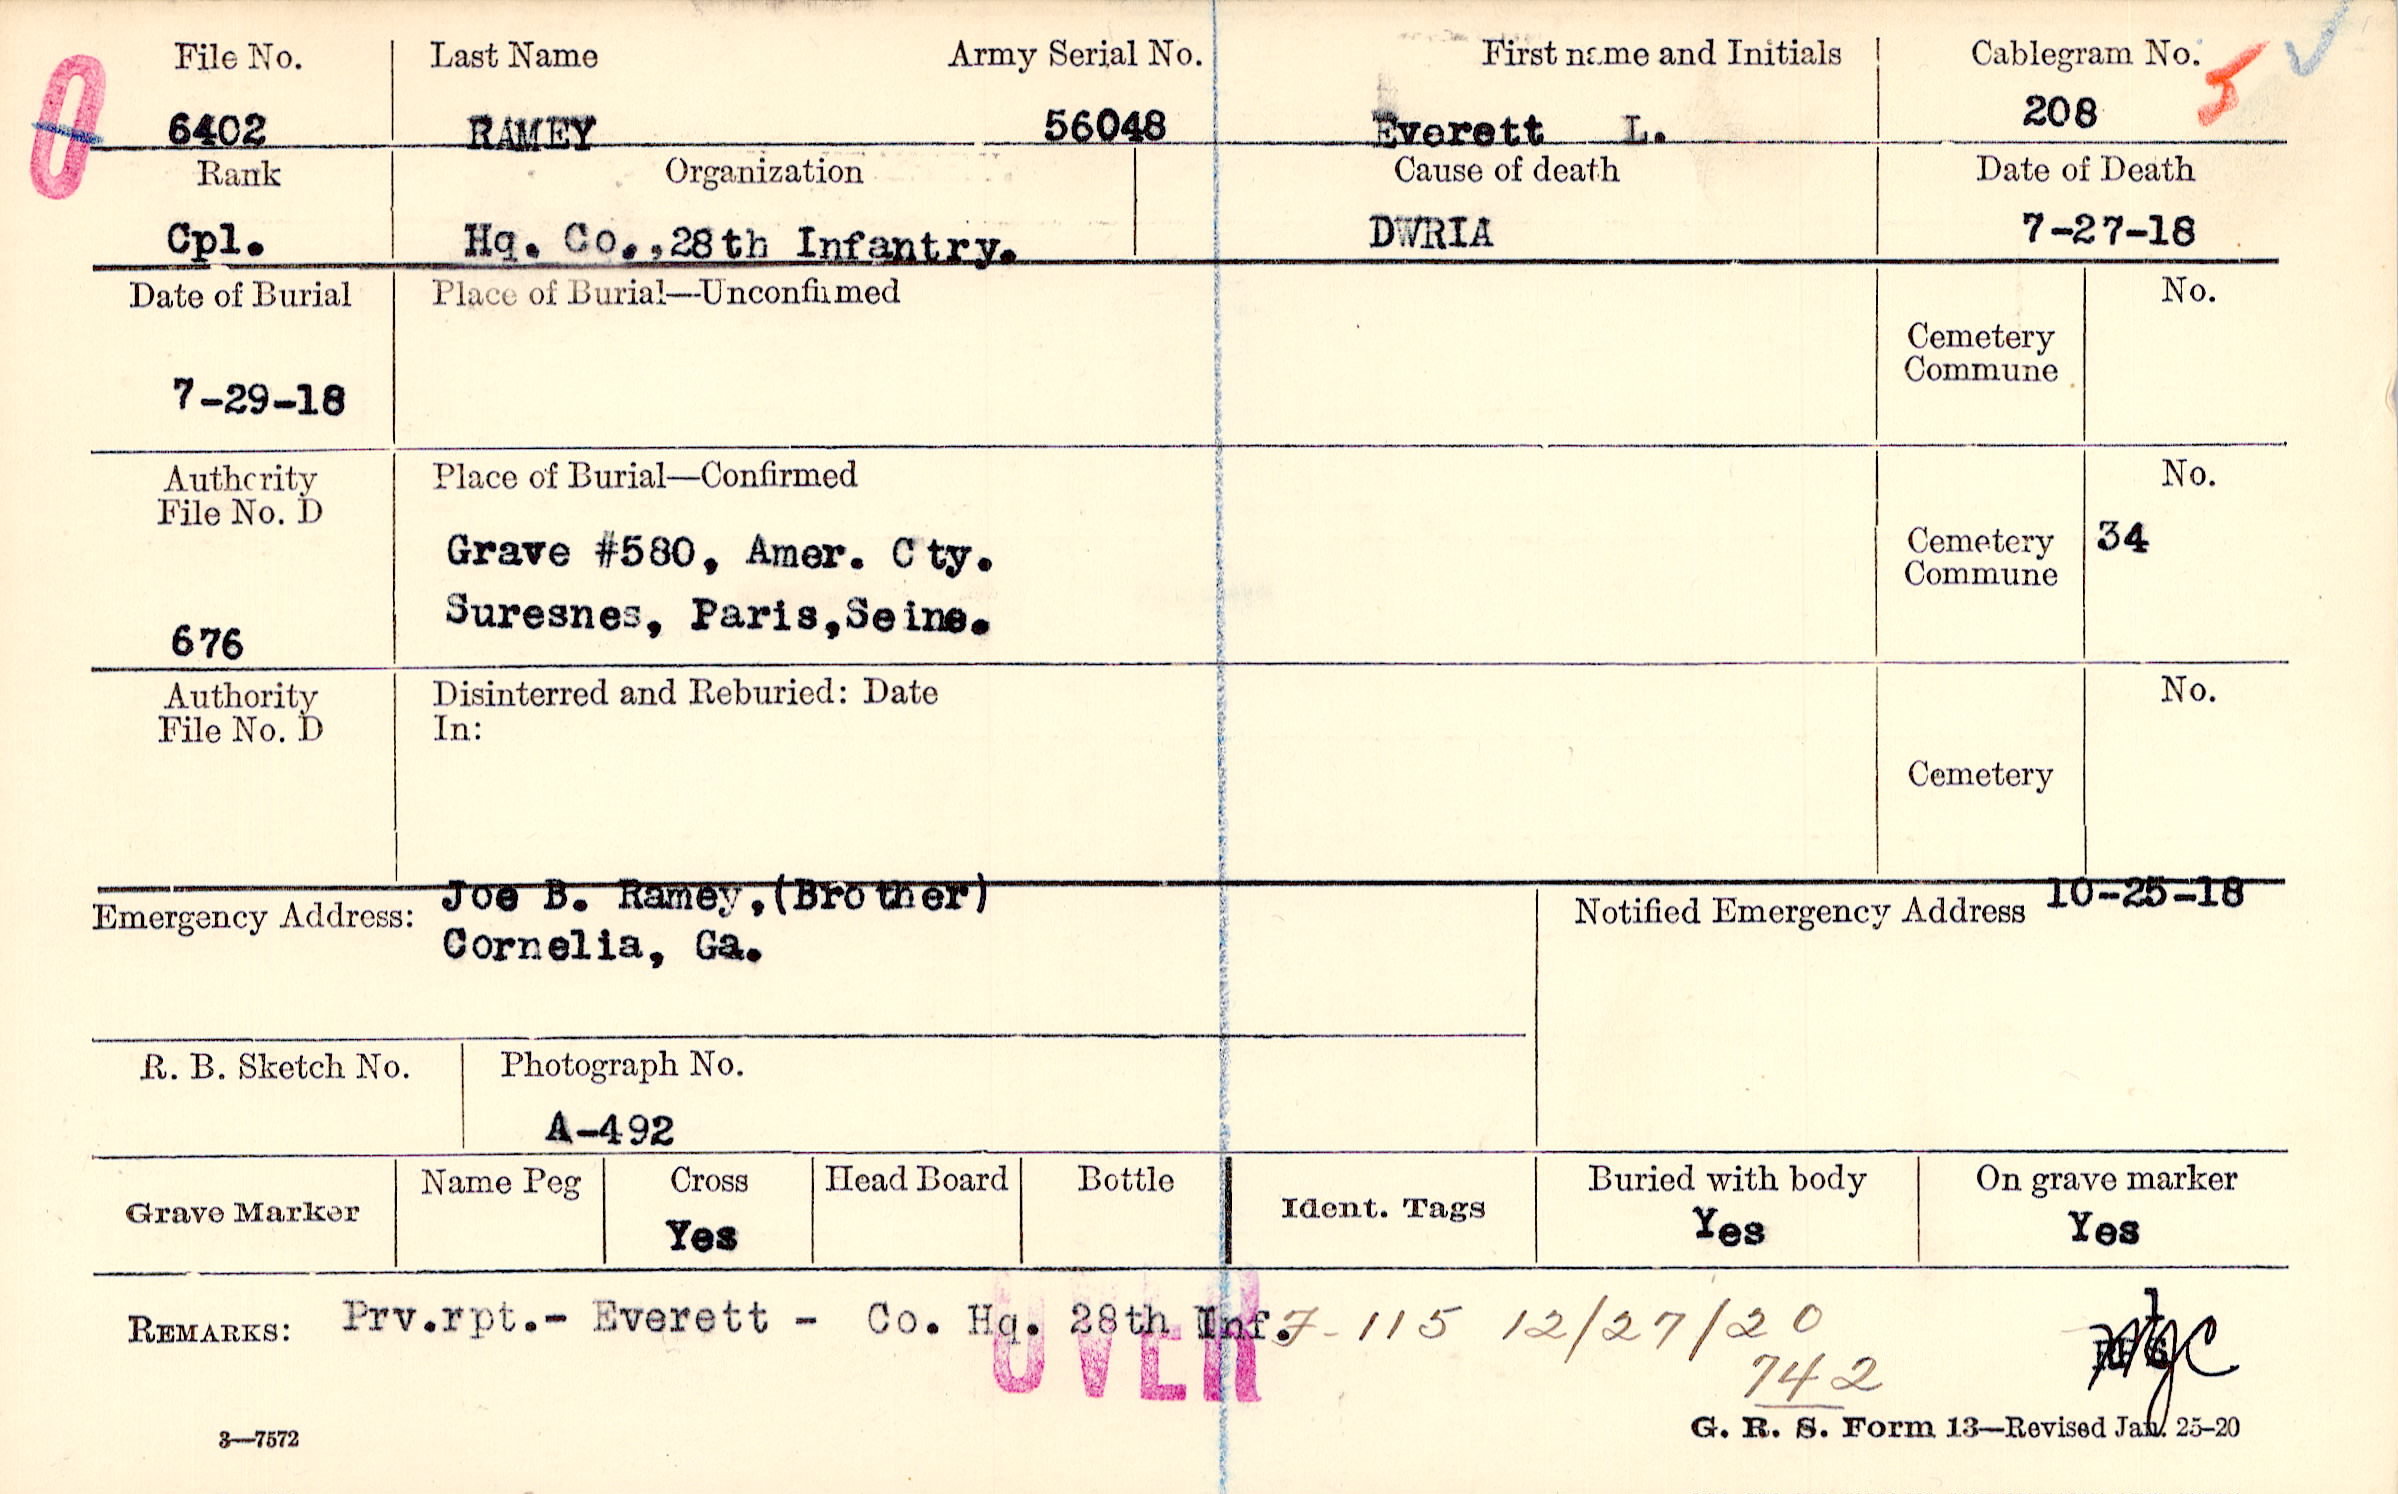 File No. Last Name Army Serial No. First name and Initials Cablegram No. 5
0 6402 RAMEY 56048 Everett L. 208
Rank Organization Cause of death Date of Death
Cpl. Hq. Co.,28th Infantry. DWRIA 7-27-18
Date of Burial Place of Burial—Unconfirmed No.
Cemetery
Commune
7-29-18
Authority Place of Burial—Confirmed No.
File No. D
Grave #580, Amer. Cty. Cemetery 34
Commune
Suresnes, Paris,Seine.
676
Authority Disinterred and Reburied: Date No.
File No. D In:
Cemetery
Emergency Address: Joe B. Ramey,(Brother) Notified Emergency Address 10-25-18
Cornelia, Ga.
R. B. Sketch No. Photograph No.
A-492
Grave Marker Name Peg Cross Head Board Bottle Ident. Tags Buried with body On grave marker
Yes Yes Yes
REMARKS: Prv.rpt.- Everett - Co. Hq. 28th Inf. 7-115 12/27/20
OVER 742
3—7572 G. R. S. Form 13—Revised Jan. 25-20